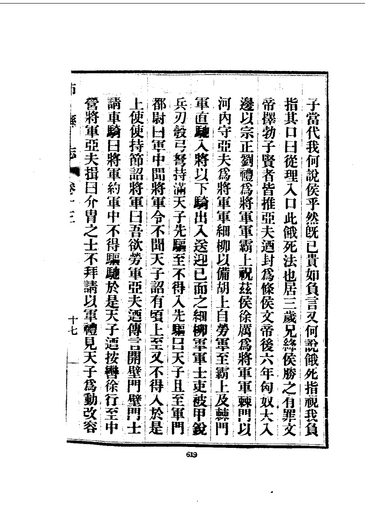 子當代我何說侯乎然既已貴如負言又何說餓死指視我負
指其口曰從理入口此餓死法也居三歲兄絳侯勝之有罪文
帝擇勃子賢者皆推亞夫迺封為條侯文帝後六年匈奴大入
邊以宗正劉禮為將軍軍霸上祝茲侯徐厲為將軍軍棘門以
河內守亞夫為將軍軍細柳以備胡上自勞軍至霸上及棘門
軍直馳入將以下騎出入送迎已而之細柳軍軍士吏被甲銳
兵刃彀弓弩持滿天子先驅至不得入先驅曰天子且至軍門
都尉曰軍中聞將軍令不聞天子詔有頃上至又不得入於是
上使使持節詔將軍曰吾欲勞軍亞夫迺傳言開壁門壁門士
請車騎曰將軍約軍中不得驅馳於是天子迺按轡徐行至中
營將軍亞夫揖曰介冑之士不拜請以軍禮見天子為動改容
志
卷十三
十七
619